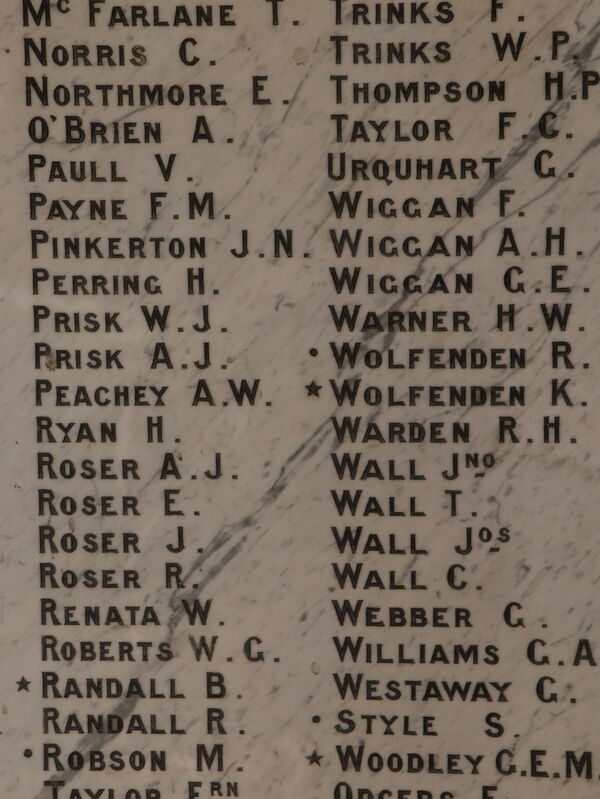 Mc FARLANE T.
NORRIS C.
NORTHMORE E.
O'BRIEN A.
PAULL V.
PAYNE F.M.
PINKERTON J.N.
PERRING H.
PRISK W.J.
PRISK A.J.
PEACHEY A.W.
RYAN H.
ROSER A.J.
ROSER E.
ROSER J.
ROSER R.
RENATA W.
ROBERTS W.G.
★ RANDALL B.
RANDALL R.
• ROBSON M.
TAYLOR FRN
TRINKS F.
TRINKS W.P.
THOMPSON H.P
TAYLOR F.C.
URQUHART G.
WIGGAN F.
WIGGAN A.H.
WIGGAN G.E.
WARNER H.W.
• WOLFENDEN R.
★ WOLFENDEN K.
WARDEN R.H.
WALL JNO
WALL T.
WALL JOS
WALL C.
WEBBER G.
WILLIAMS G.A
WESTAWAY G.
• STYLE S.
★ WOODLEY G.E.M.
ODGERS F